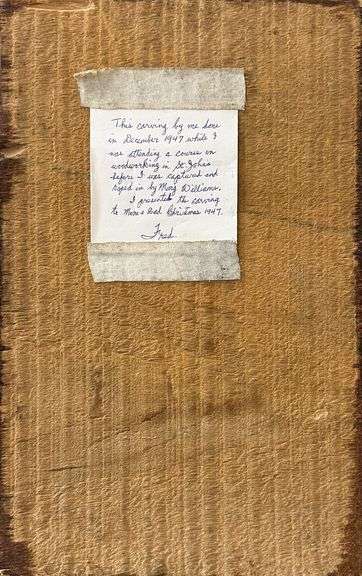 This carving by me done
in December 1947 while I
was attending a course in
woodworking in St. Johns
before I was captured and
roped in by Marg Williams.
I presented the carving
to Mom & Dad Christmas 1947.
Fred